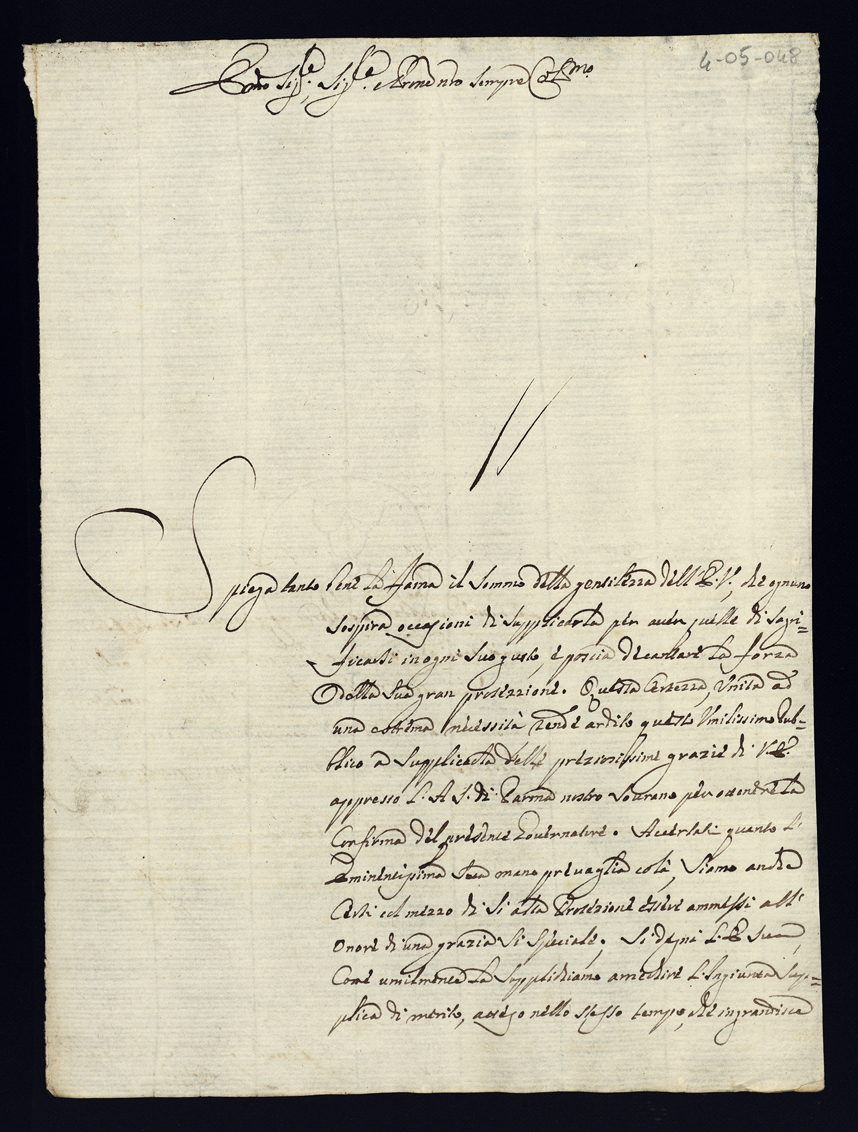 4-05-048
Emo Sig.re, Sig.re e Prone nro sempre Col.mo
Spiega tanto bene la fama il sommo della gentilezza dell'E.V., che ognuno
sospira occasioni di supplicarla per aver quelle di sagri=
ficarsi in ogni suo gusto, e poscia decantare la forza
della sua gran protezzione. Questa certezza, unita ad
una estrema necessità rende ardito questo Umilissimo Pub=
blico a supplicarla delle preziosissime grazie di V.E.
appresso l'A.S. di Parma nostro Sourano per ottenere la
confirma del presente Governatore. Accertati quanto l'
Eminentissima Sua mano prevaglia colà, siamo anche
certi col mezzo di sì alta Protezione essere ammessi all'
onore di una grazia sì speciale. Si degni l'E. Sua,
come umilmente la supplichiamo arrichire l'ingiunta sup=
plica di merito, acciò nello stesso tempo, che ingrandisce